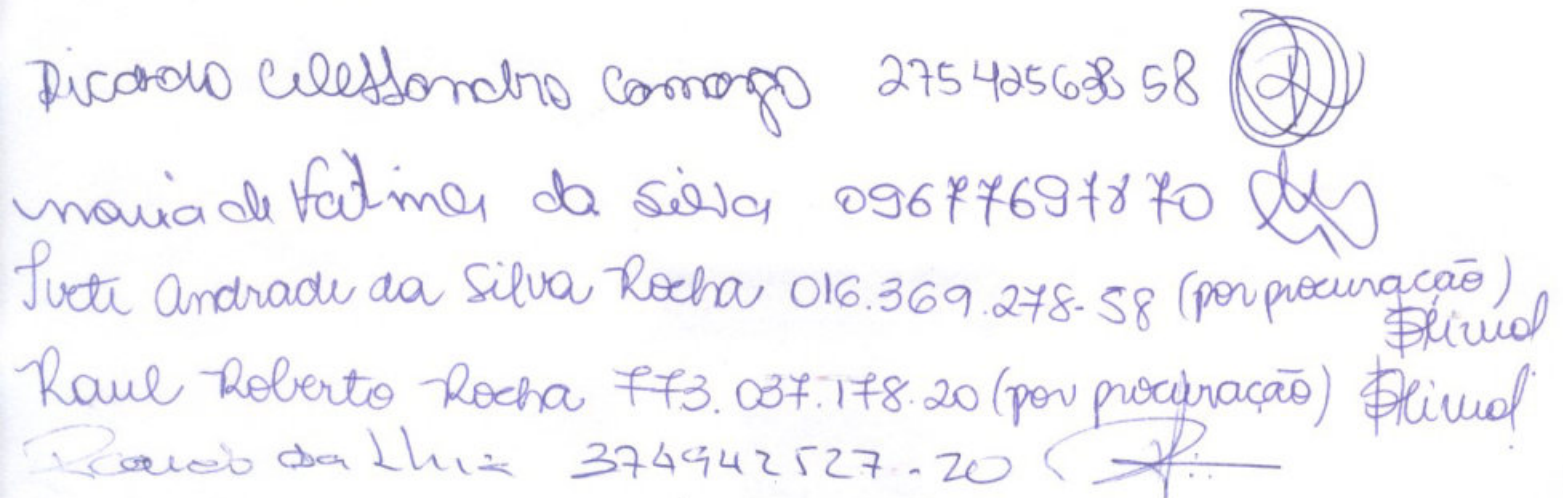 Ricardo Alessandro Camargo 275425638 58
maria de Fatima da Silva 09677697870
Ivete Andrade da Silva Rocha 016.369.278-58 (por procuração)
Raul Roberto Rocha 773.037.178.20 (por procuração)
da 374942527-20